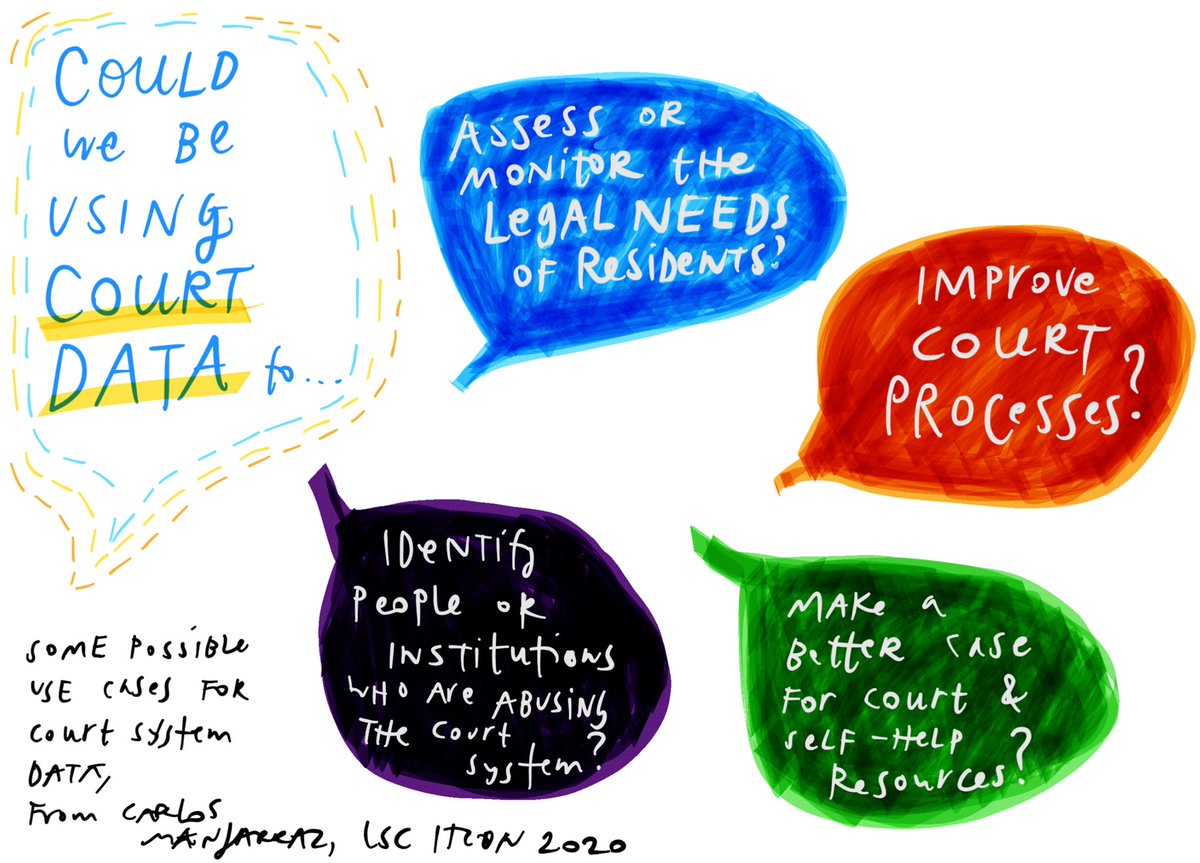 COULD
we BE
USING
COURT
DATA to...
ASSESS OR
MONITOR THE
LEGAL NEEDS
OF RESIDENTS?
IMPROVE
COURT
PROCESSES?
IDENTIFY
PEOPLE OR
INSTITUTIONS
WHO ARE ABUSING
THE COURT
SYSTEM?
MAKE A
BETTER CASE
FOR COURT &
SELF-HELP
RESOURCES?
SOME POSSIBLE
USE CASES FOR
COURT SYSTEM
DATA,
From CARLOS
MANJARREZ, LSC ITCON 2020